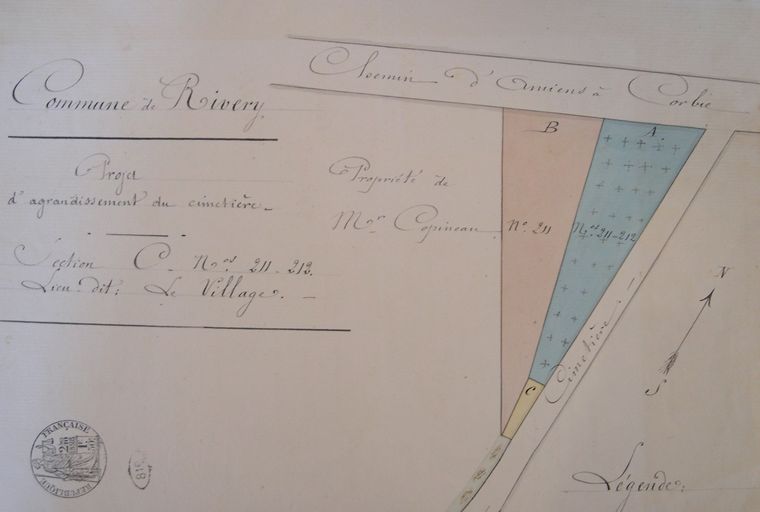 Commune de Rivery.
Projet
d'agrandissement du cimetière.
Section C. Nos 211 - 212.
Lieu dit: Le Village.
Chemin d'Amiens à Corbie
Propriété de
Mr Copineau
B
A
No 211
Nos 211-212
C
Cimetière
N
S
Légende:
RÉPUBLIQUE FRANÇAISE